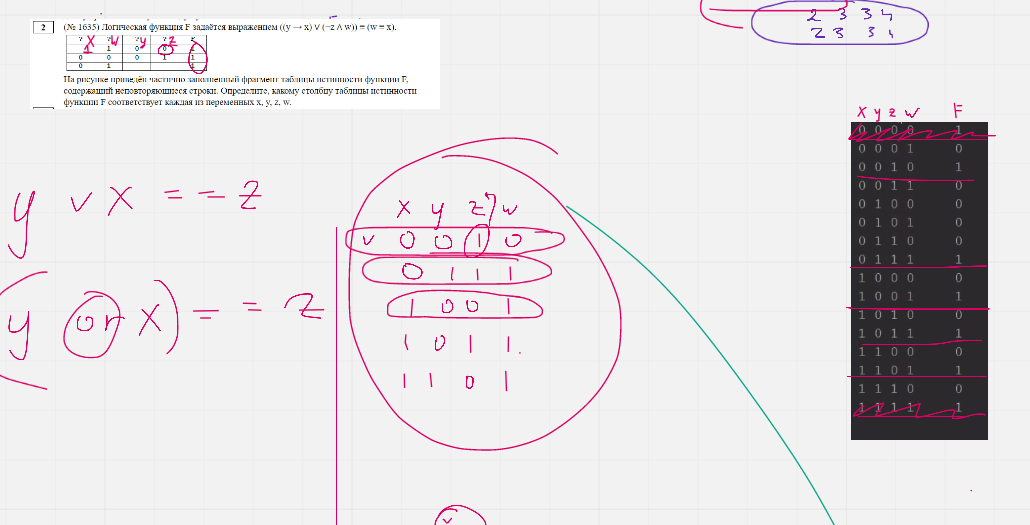 2 3 3 4
2 3 3 4
2 (№ 1635) Логическая функция F задаётся выражением ((y → x) ∨ (¬z ∧ w)) ≡ (w ≡ x).
? ? ? ? F
x w y z
1 1 0 0 1
0 0 0 1 1
0 1 1
На рисунке приведён частично заполненный фрагмент таблицы истинности функции F,
содержащий неповторяющиеся строки. Определите, какому столбцу таблицы истинности
функции F соответствует каждая из переменных x, y, z, w.
y v x = = z
y or x) = = z
x y z w
v 0 0 1 0
0 1 1 1
1 0 0 1
1 0 1 1.
1 1 0 1
x
x y z w F
0 0 0 0 1
0 0 0 1 0
0 0 1 0 1
0 0 1 1 0
0 1 0 0 0
0 1 0 1 0
0 1 1 0 0
0 1 1 1 1
1 0 0 0 0
1 0 0 1 1
1 0 1 0 0
1 0 1 1 1
1 1 0 0 0
1 1 0 1 1
1 1 1 0 0
1 1 1 1 1